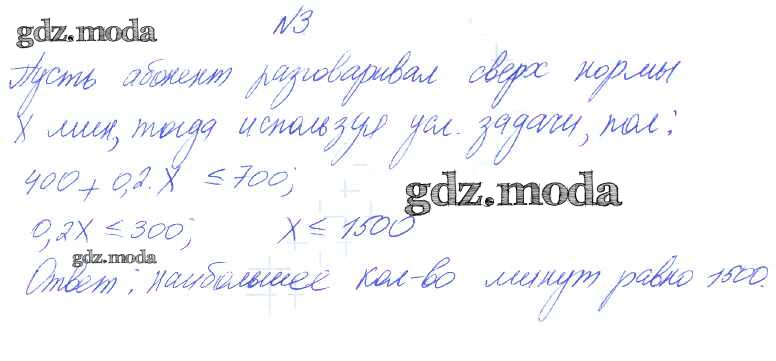 N3
gdz.moda
Пусть абонент разговаривал сверх нормы
x мин, тогда используя усл. задачи, пол:
400+0,2·x ≤700;
gdz.moda
0,2x ≤ 300; x ≤ 1500
gdz.moda
Ответ: наибольшее кол-во минут равно 1500.